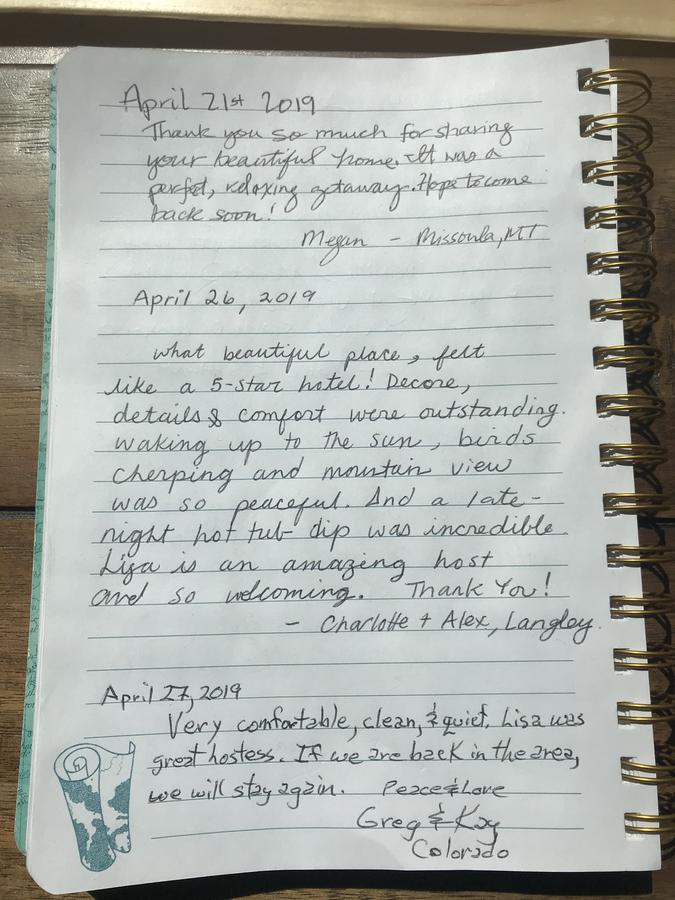 April 21st 2019
Thank you so much for sharing
your beautiful home. It was a
perfect, relaxing getaway. Hope to come
back soon!
Megan - Missoula, MT
April 26, 2019
what beautiful place, felt
like a 5-star hotel! Decore,
details & comfort were outstanding.
waking up to the sun, birds
cherping and mountain view
was so peaceful. And a late-
night hot tub dip was incredible.
Lisa is an amazing host
and so welcoming. Thank You!
- Charlotte + Alex, Langley.
April 27, 2019
Very comfortable, clean, & quiet. Lisa was
great hostess. If we are back in the area,
we will stay again. Peace & Love
Greg & Kay
Colorado